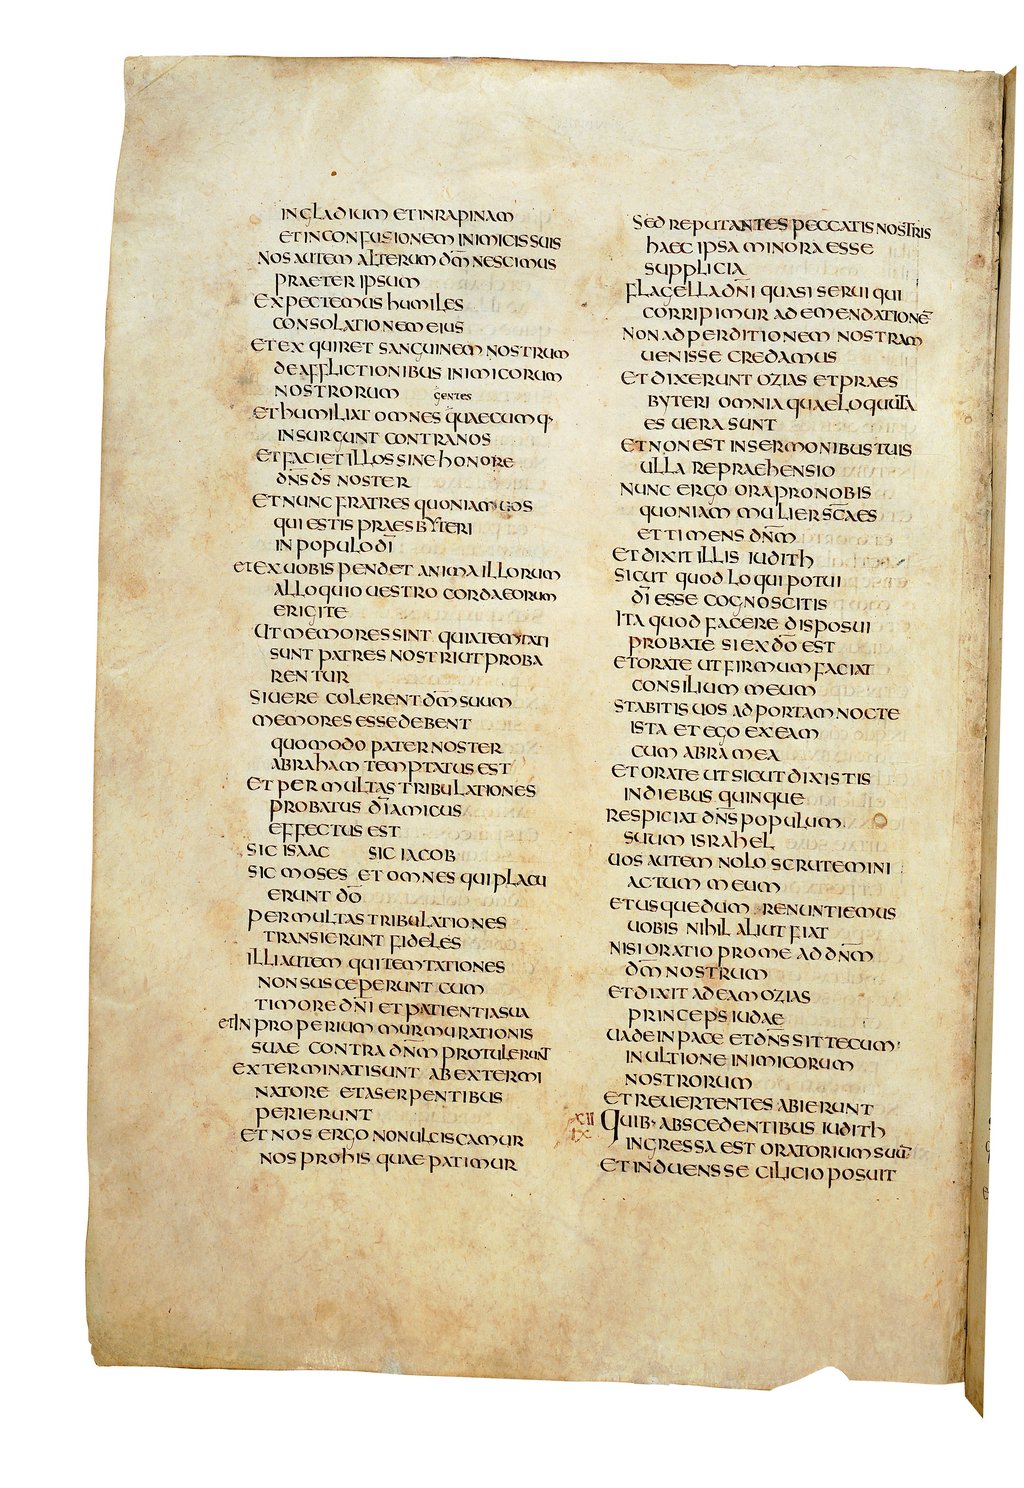 IN GLADIUM ET IN RAPINAM
ET IN CONFUSIONEM INIMICIS SUIS
NOS AUTEM ALTERUM DM̄ NESCIMUS
PRAETER IPSUM
EXPECTEMUS HUMILES
CONSOLATIONEM EIUS
ET EXQUIRET SANGUINEM NOSTRUM
DE AFFLICTIONIBUS INIMICORUM
NOSTRORUM
gentes
ET HUMILIAT OMNES QUAECUMQ·
INSURGUNT CONTRA NOS
ET FACIET ILLOS SINE HONORE
DN̄S DS̄ NOSTER
ET NUNC FRATRES QUONIAM UOS
QUI ESTIS PRAESBYTERI
IN POPULO DĪ
et EX UOBIS PENDET ANIMA ILLORUM
ALLOQUIO UESTRO CORDA EORUM
ERIGITE
UT MEMORES SINT QUIA TEMTATI
SUNT PATRES NOSTRI UT PROBA
RENTUR
SI UERE COLERENT DM̄ SUUM
MEMORES ESSE DEBENT
QUOMODO PATER NOSTER
ABRAHAM TEMPTATUS EST
ET PER MULTAS TRIBULATIONES
PROBATUS DĪ AMICUS
EFFECTUS EST
SIC ISAAC SIC IACOB
SIC MOSES ET OMNES QUI PLACU
ERUNT DŌ
PER MULTAS TRIBULATIONES
TRANSIERUNT FIDELES
ILLI AUTEM QUI TEMTATIONES
NON SUSCEPERUNT CUM
TIMORE DN̄I ET PATIENTIA SUA
et INPROPERIUM MURMURATIONIS
SUAE CONTRA DN̄M PROTULERUNT
EXTERMINATI SUNT AB EXTERMI
NATORE ET A SERPENTIBUS
PERIERUNT
ET NOS ERGO NON ULCISCAMUR
NOS PRO HIS QUAE PATIMUR
SED REPUTANTES PECCATIS NOSTRIS
HAEC IPSA MINORA ESSE
SUPPLICIA
FLAGELLA DN̄I QUASI SERUI QUI
CORRIPIMUR AD EMENDATIONĒ
NON AD PERDITIONEM NOSTRAM
UENISSE CREDAMUS
ET DIXERUNT OZIAS ET PRAES
BYTERI OMNIA QUAE LOQUUTA
ES UERA SUNT
ET NON EST IN SERMONIBUS TUIS
ULLA REPRAEHENSIO
NUNC ERGO ORA PRO NOBIS
QUONIAM MULIER SC̄A ES
ET TIMENS DN̄M
ET DIXIT ILLIS IUDITH
SICUT QUOD LOQUI POTUI
DĪ ESSE COGNOSCITIS
ITA QUOD FACERE DISPOSUI
PROBATE SI EX DŌ EST
ET ORATE UT FIRMUM FACIAT
CONSILIUM MEUM
STABITIS UOS AD PORTAM NOCTE
ISTA ET EGO EXEAM
CUM ABRA MEA
ET ORATE UT SICUT DIXISTIS
IN DIEBUS QUINQUE
RESPICIAT DN̄S POPULUM
SUUM ISRAHEL
UOS AUTEM NOLO SCRUTEMINI
ACTUM MEUM
ET USQUE DUM RENUNTIEM UOS
UOBIS NIHIL ALIUT FIAT
NISI ORATIO PRO ME AD DN̄M
DM̄ NOSTRUM
ET DIXIT AD EAM OZIAS
PRINCEPS IUDAE
UADE IN PACE ET DN̄S SIT TECUM
IN ULTIONE INIMICORUM
NOSTRORUM
ET REUERTENTES ABIERUNT
XII QUIB· ABSCEDENTIBUS IUDITH
IX INGRESSA EST ORATORIUM SUŪ
ET INDUENS SE CILICIO POSUIT